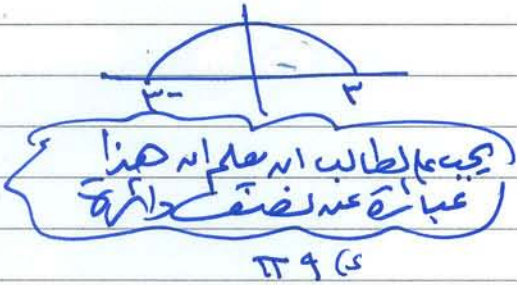 ٣- ٣
يجب على الطالب ان يعلم ان هذا
عبارة عن نصف دائرة
د) ٩ π